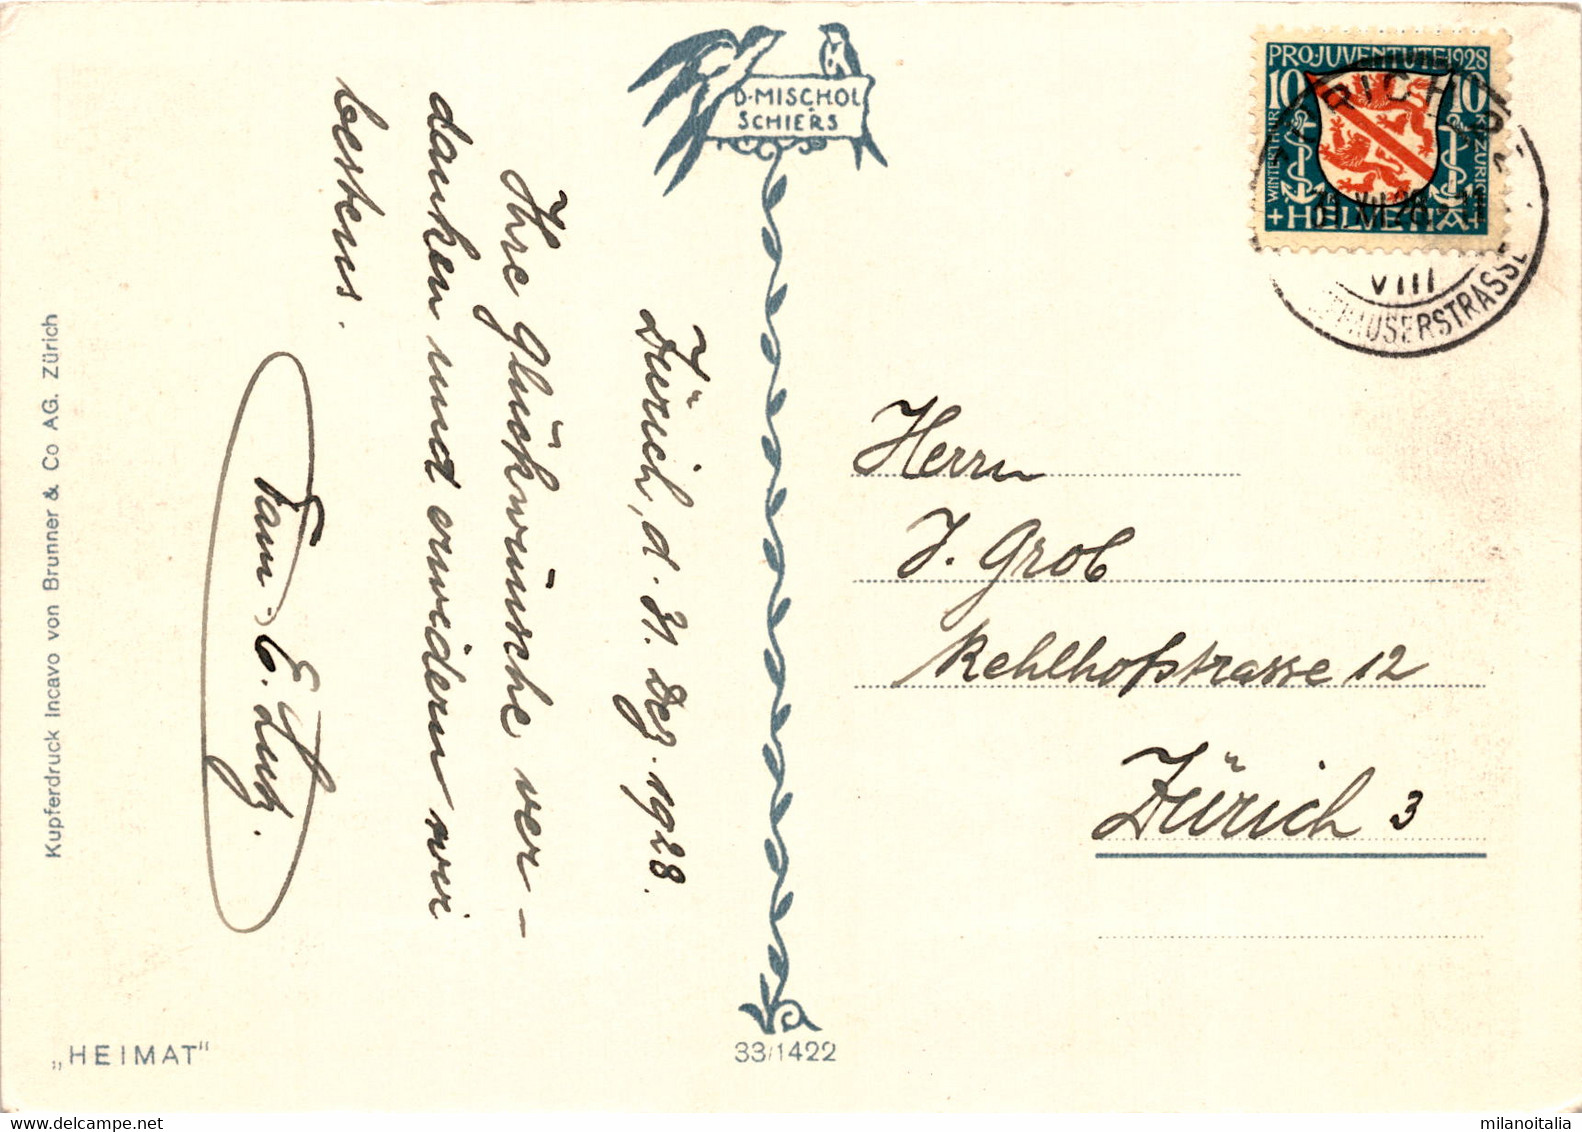 D. MISCHOL
SCHIERS
PRO JUVENTUTE 1928
10
10
WINTERTHUR
KT. ZÜRICH
+HELVETIA+
31.XII.28.-11
VIII
Zürich, d. 31. Dez. 1928.
Ihre Glückwünsche ver-
danken und erwidern wir
bestens.
Fam. E. Lutz.
Herrn
J. Grob
Kehlhofstrasse 12
Zürich 3
Kupferdruck Incavo von Brunner & Co AG. Zürich
„HEIMAT"
33/1422
milanoitalia